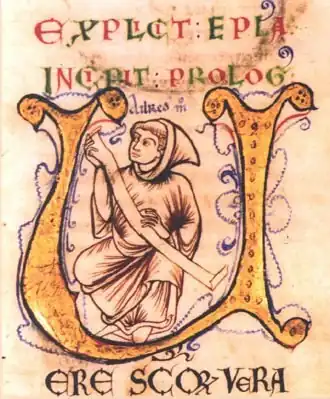 EXPLICT : EPLA.
INCIPIT : PROLOG
U
ERE SCOꝜ VERA